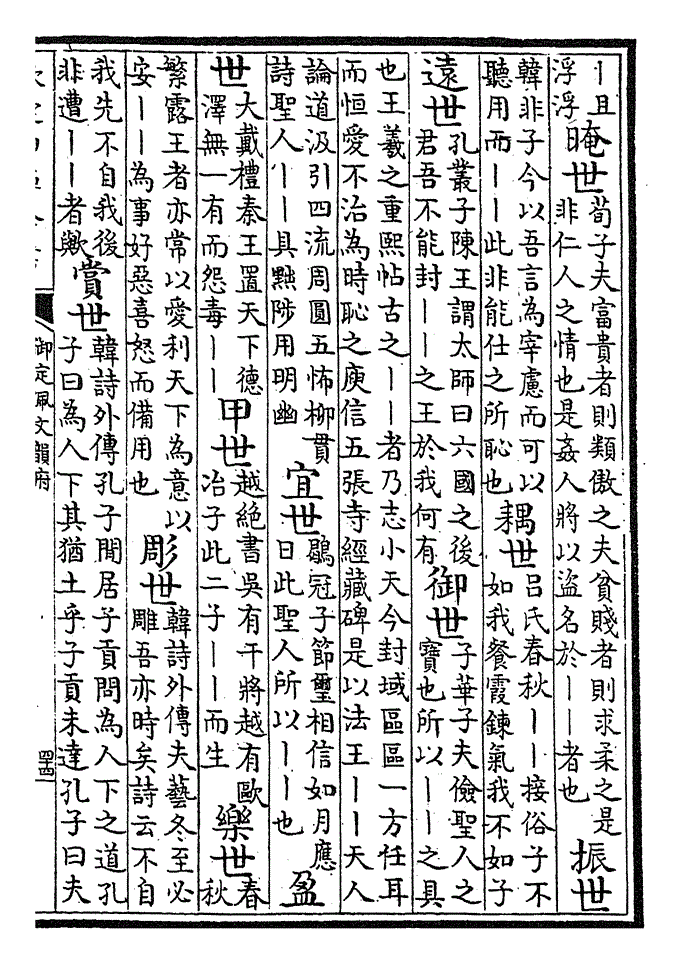 丨且
浮浮
晻世
荀子夫富貴者則類傲之夫貧賤者則求柔之是
非仁人之情也是姦人將以盜名於丨丨者也
振世
韓非子今以吾言為宰慮而可以
聽用而丨丨此非能仕之所恥也
耦世
呂氏春秋丨丨接俗子不
如我餐霞鍊氣我不如子
遠世
孔叢子陳王謂太師曰六國之後
君吾不能封丨丨之王於我何有
御世
子華子夫儉聖人之
寶也所以丨丨之具
也王羲之重熙帖古之丨丨者乃志小天今封域區區一方任耳
而恒愛不治為時恥之庾信五張寺經藏碑是以法王丨丨天人
論道汲引四流周圓五怖柳貫
詩聖人丨丨具黜陟用明幽
宜世
鶡冠子節璽相信如月應
日此聖人所以丨丨也
盈
世
大戴禮秦王置天下德
澤無一有而怨毒丨丨
甲世
越絶書吳有干將越有歐
冶子此二子丨丨而生
樂世
春
秋
繁露王者亦常以愛利天下為意以
安丨丨為事好惡喜怒而備用也
彫世
韓詩外傳夫藝冬至必
雕吾亦時矣詩云不自
我先不自我後
非遭丨丨者歟
賞世
韓詩外傳孔子閒居子貢問為人下之道孔
子曰為人下其猶土乎子貢未達孔子曰夫
御定佩文韻府
四十四